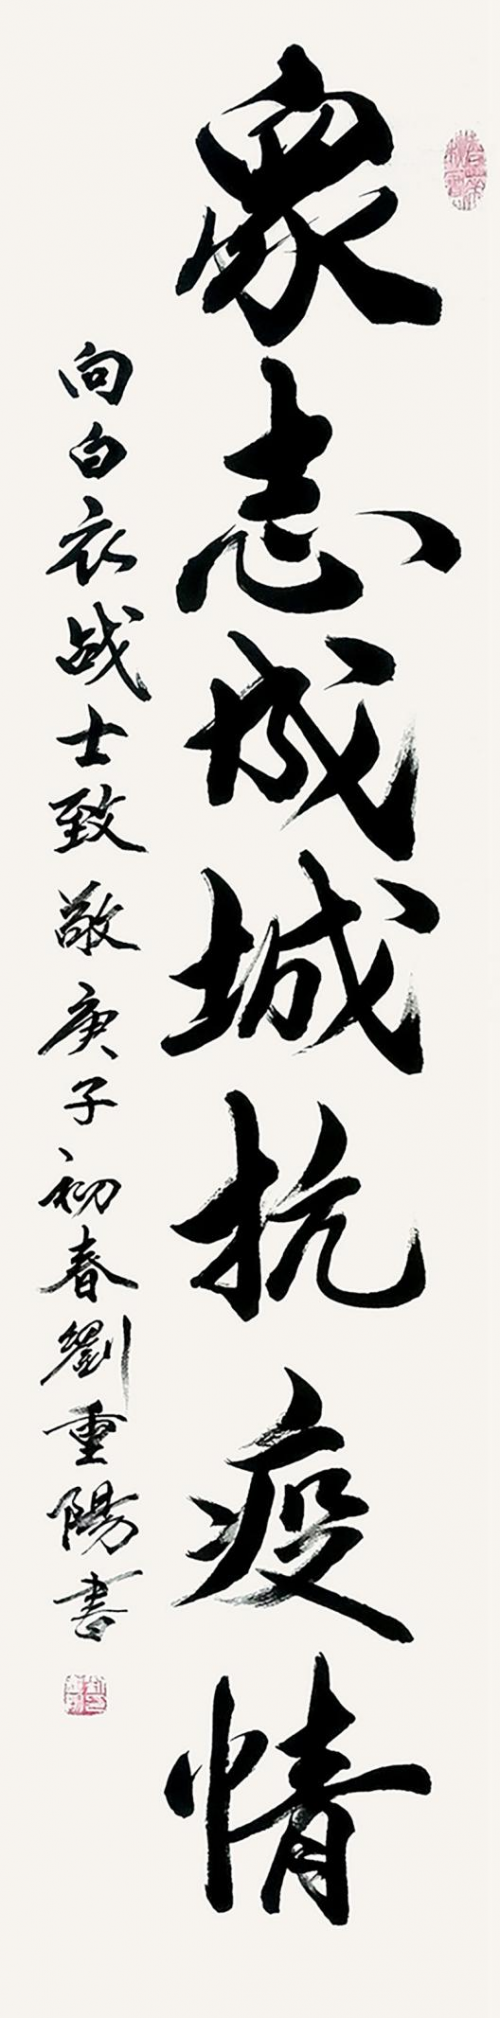 眾志成城抗疫情
向白衣战士致敬庚子初春劉重陽書